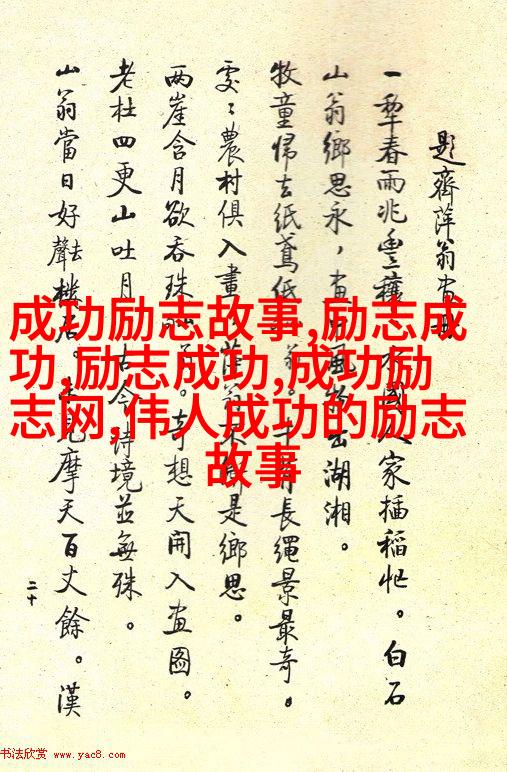 題齊萍翁画冊
一犁春雨兆豐穰 人家插稻忙。白石
山翁鄉思永,畫 風 出湖湘。
牧童歸去紙鳶低 長繩景最奇。
處々農村俱入畫 萍翁 是鄉思。
兩崖含月欲吞珠 。奇想天開入画圖。
老杜四更山吐月 古今詩境並無殊。
山翁當日好聲去樓居。 摩天百丈餘。漢
二十
成功励志故事,励志成
功,励志成功,成功励
志网,伟人成功的励志
故事
书法欣赏 www.yac8.com